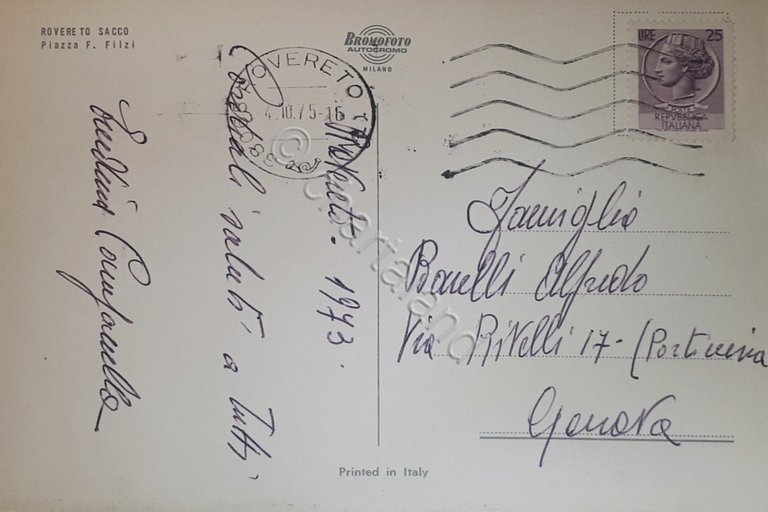 ROVERETO SACCO
Piazza F. Filzi
BROMOFOTO
AUTOCROMO
MILANO
LIRE 25
POSTE
REPVBBLICA
ITALIANA
ROVERETO
4.10.75-16
38068
Rovereto - 1973.
Cordiali saluti a tutti
Famiglia
Barelli Alfredo
Via Rivelli 17 - (Portineria
Genova
Printed in Italy